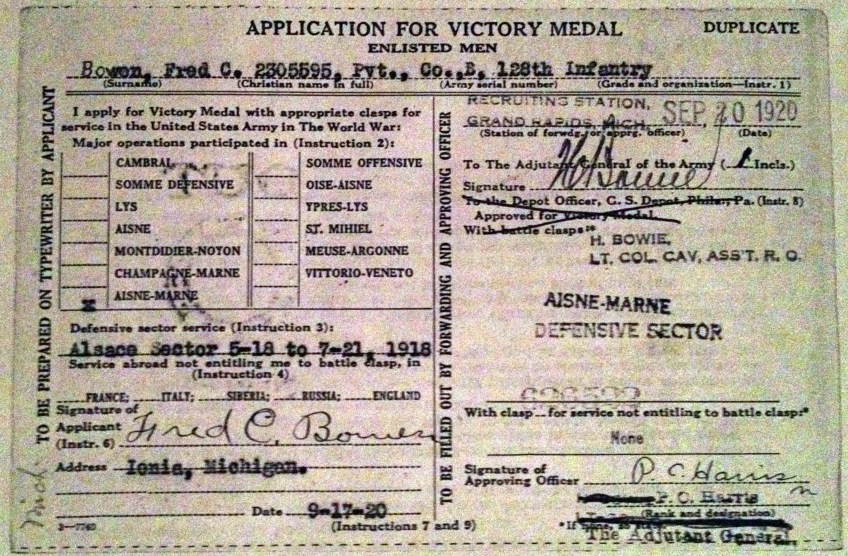 APPLICATION FOR VICTORY MEDAL
DUPLICATE
ENLISTED MEN
Bowen, Fred C. 2305595, Pvt., Co.,B, 128th Infantry
(Surname) (Christian name in full) (Army serial number) (Grade and organization—Instr. 1)
TO BE PREPARED ON TYPEWRITER BY APPLICANT
I apply for Victory Medal with appropriate clasps for
service in the United States Army in The World War:
Major operations participated in (Instruction 2):
CAMBRAI
SOMME DEFENSIVE
LYS
AISNE
MONTDIDIER-NOYON
CHAMPAGNE-MARNE
x AISNE-MARNE
SOMME OFFENSIVE
OISE-AISNE
YPRES-LYS
ST. MIHIEL
MEUSE-ARGONNE
VITTORIO-VENETO
Defensive sector service (Instruction 3):
Alsace Sector 5-18 to 7-21, 1918
Service abroad not entitling me to battle clasp, in
(Instruction 4)
FRANCE; ITALY; SIBERIA; RUSSIA; ENGLAND
Signature of
Applicant Fred C. Bowen
(Instr. 6)
Address Ionia, Michigan.
Date 9-17-20
(Instructions 7 and 9)
3—7740
Mich.
TO BE FILLED OUT BY FORWARDING AND APPROVING OFFICER
RECRUITING STATION,
GRAND RAPIDS, MICH. SEP 20 1920
(Station of forwdg. or apprg. officer) (Date)
To The Adjutant General of the Army (1 Incls.)
Signature H Bowie
To the Depot Officer, G. S. Depot, Phila., Pa. (Instr. 8)
Approved for Victory Medal.
With battle clasps:*
H. BOWIE,
LT. COL. CAV, ASS'T. R. O.
AISNE-MARNE
DEFENSIVE SECTOR
With clasp for service not entitling to battle clasp:*
None
Signature of
Approving Officer P. C. Harris
P. C. Harris
(Rank and designation)
*If none, so state.
The Adjutant General.